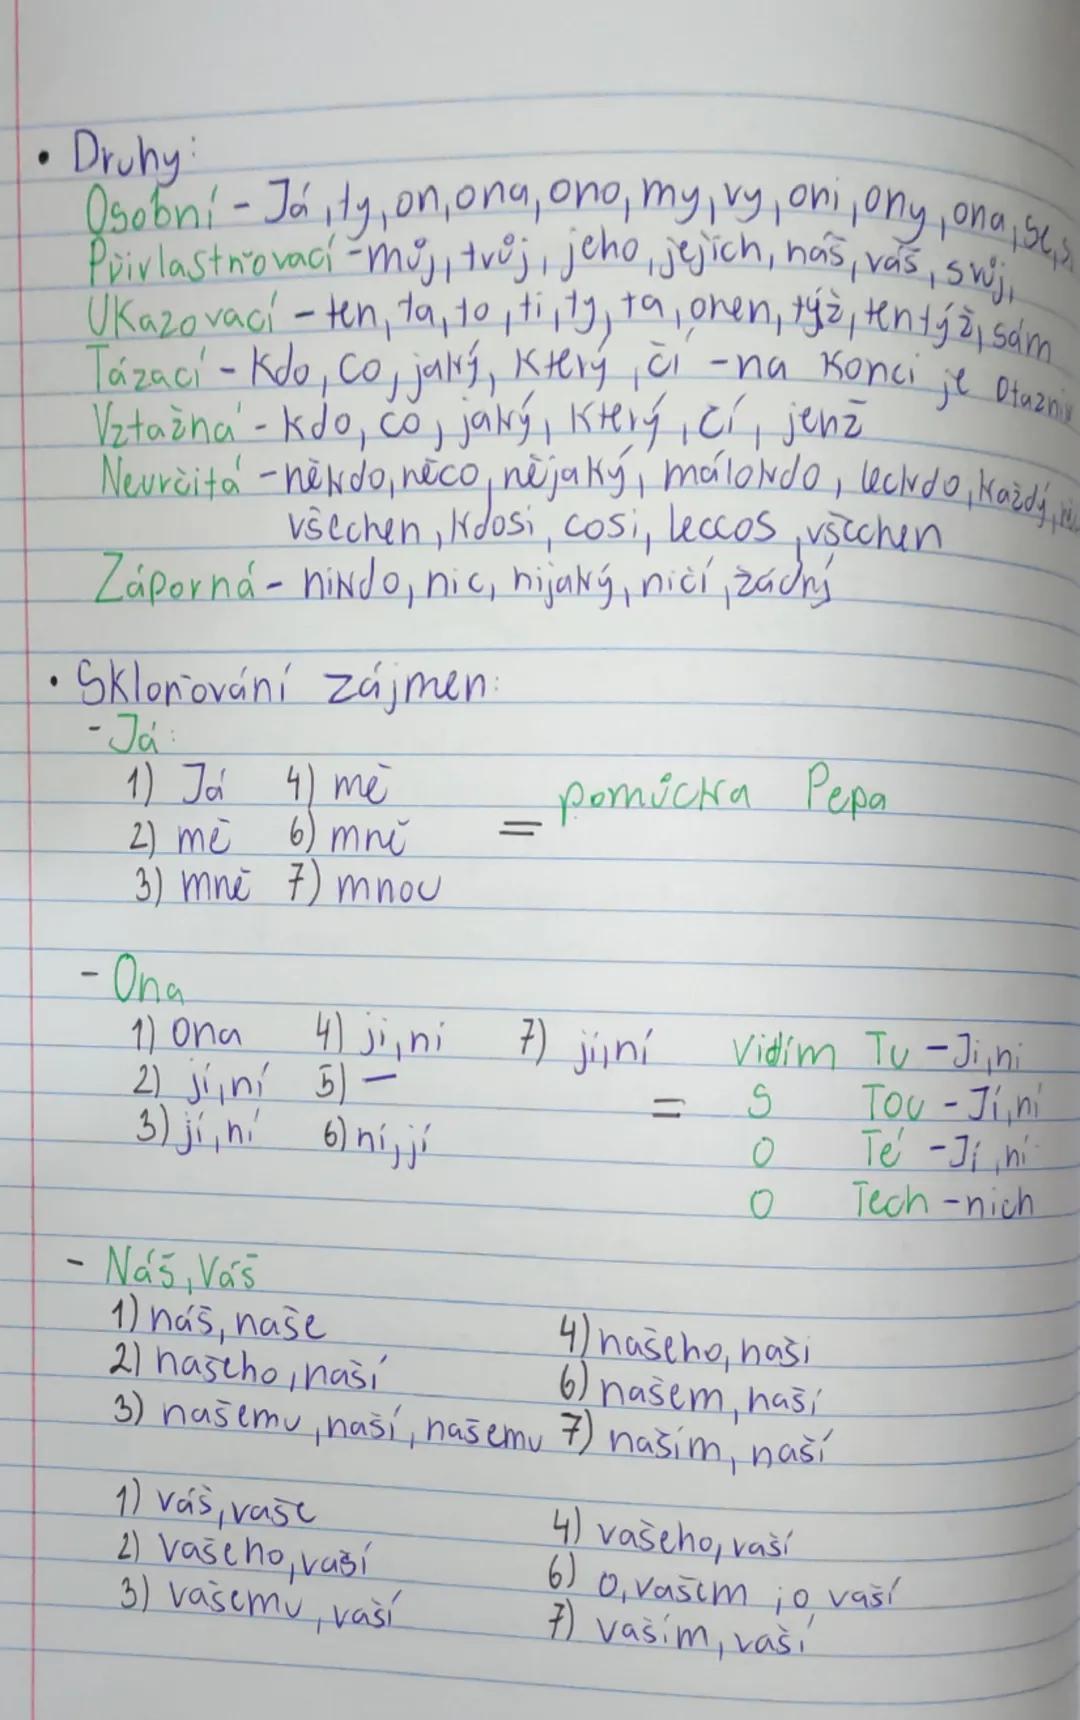 • Druhy:
Osobní - Já, ty, on, ona, ono, my, vy, oni, ony, ona, se, s
Přivlastňovací - můj, tvůj, jeho, jejich, náš, váš, svůj,
Ukazovací - ten, ta, to, ti, ty, ta, onen, týž, tentýž, sám
Tázací - kdo, co, jaký, který, čí - na konci je Otazník
Vztažná - kdo, co, jaký, který, čí, jenž
Neurčitá - někdo, něco, nějaký, málokdo, leckdo, každý,
všechen, kdosi, cosi, leccos, všechen
Záporná - nikdo, nic, nijaký, ničí, žádný
• Skloňování zájmen:
- Já:
1) Já 4) mě
2) mě 6) mně = pomůcka Pepa
3) mně 7) mnou
- Ona
1) ona 4) ji, ni 7) jí, ní Vidím Tu - Ji, ni
2) jí, ní 5) — = S Tou - Jí, ní
3) jí, ní 6) ní, jí O Té - Jí, ní
O Tech - nich
- Náš, Váš
1) náš, naše 4) našeho, naši
2) našeho, naší 6) našem, naší
3) našemu, naší, našemu 7) naším, naší
1) váš, vaše 4) vašeho, vaší
2) vašeho, vaší 6) o, vašem, o vaší
3) vašemu, vaší 7) vaším, vaší